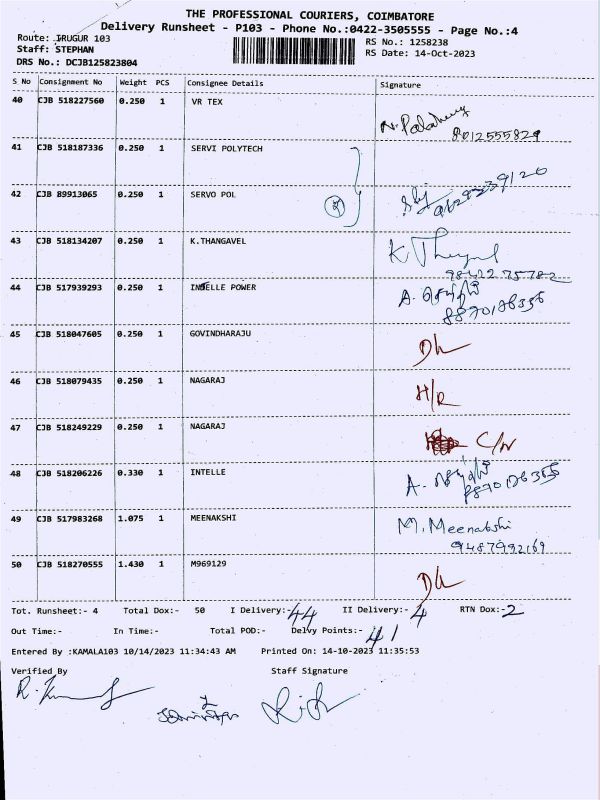 THE PROFESSIONAL COURIERS, COIMBATORE
Delivery Runsheet - P103 - Phone No.:0422-3505555 - Page No.:4
Route: IRUGUR 103
RS No.: 1258238
Staff: STEPHAN
RS Date: 14-Oct-2023
DRS No.: DCJB125823804
S No Consignment No Weight PCS Consignee Details Signature
40 CJB 518227560 0.250 1 VR TEX
8012555829
41 CJB 518187336 0.250 1 SERVI POLYTECH
42 CJB 89913065 0.250 1 SERVO POL
43 CJB 518134207 0.250 1 K.THANGAVEL K
98422 75782
44 CJB 517939293 0.250 1 INTELLE POWER A.
8870176356
45 CJB 518047605 0.250 1 GOVINDHARAJU
46 CJB 518079435 0.250 1 NAGARAJ H/R
47 CJB 518249229 0.250 1 NAGARAJ C/N
48 CJB 518206226 0.330 1 INTELLE A.
49 CJB 517983268 1.075 1 MEENAKSHI M. Meenakshi
9487992169
50 CJB 518270555 1.430 1 M969129
Tot. Runsheet:- 4 Total Dox:- 50 I Delivery:- 44 II Delivery:- 4 RTN Dox:- 2
Out Time:- In Time:- Total POD:- Delvy Points:- 41
Entered By :KAMALA103 10/14/2023 11:34:43 AM Printed On: 14-10-2023 11:35:53
Verified By Staff Signature